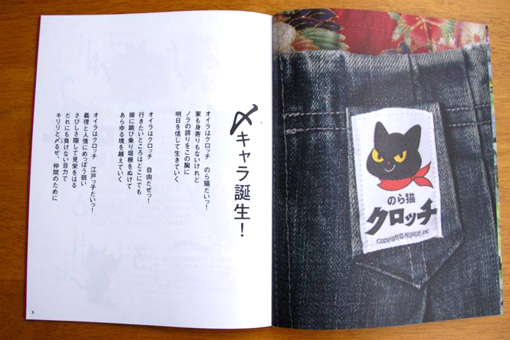 〆キャラ誕生！
オイラはクロッチ　のら猫だいっ！
家も身寄りもないけれど
ノラの誇りをこの胸に
明日を信じて生きていく
オイラはクロッチ　自由だぜっ！
行きたいところはどこにでも
塀に跳び乗り垣根をぬけて
あらゆる境を越えていく
オイラはクロッチ　江戸っ子だいっ！
義理と人情にめっぽう弱い
さびしさ隠して見栄をはる
だれにも負けない目力で
キリリと〆るぜ、仲間のために
のら猫
クロッチ